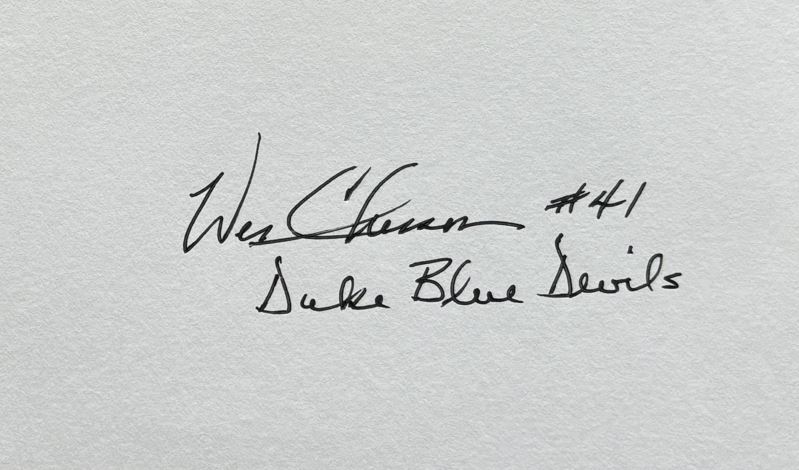 Wes Chesson #41
Duke Blue Devils